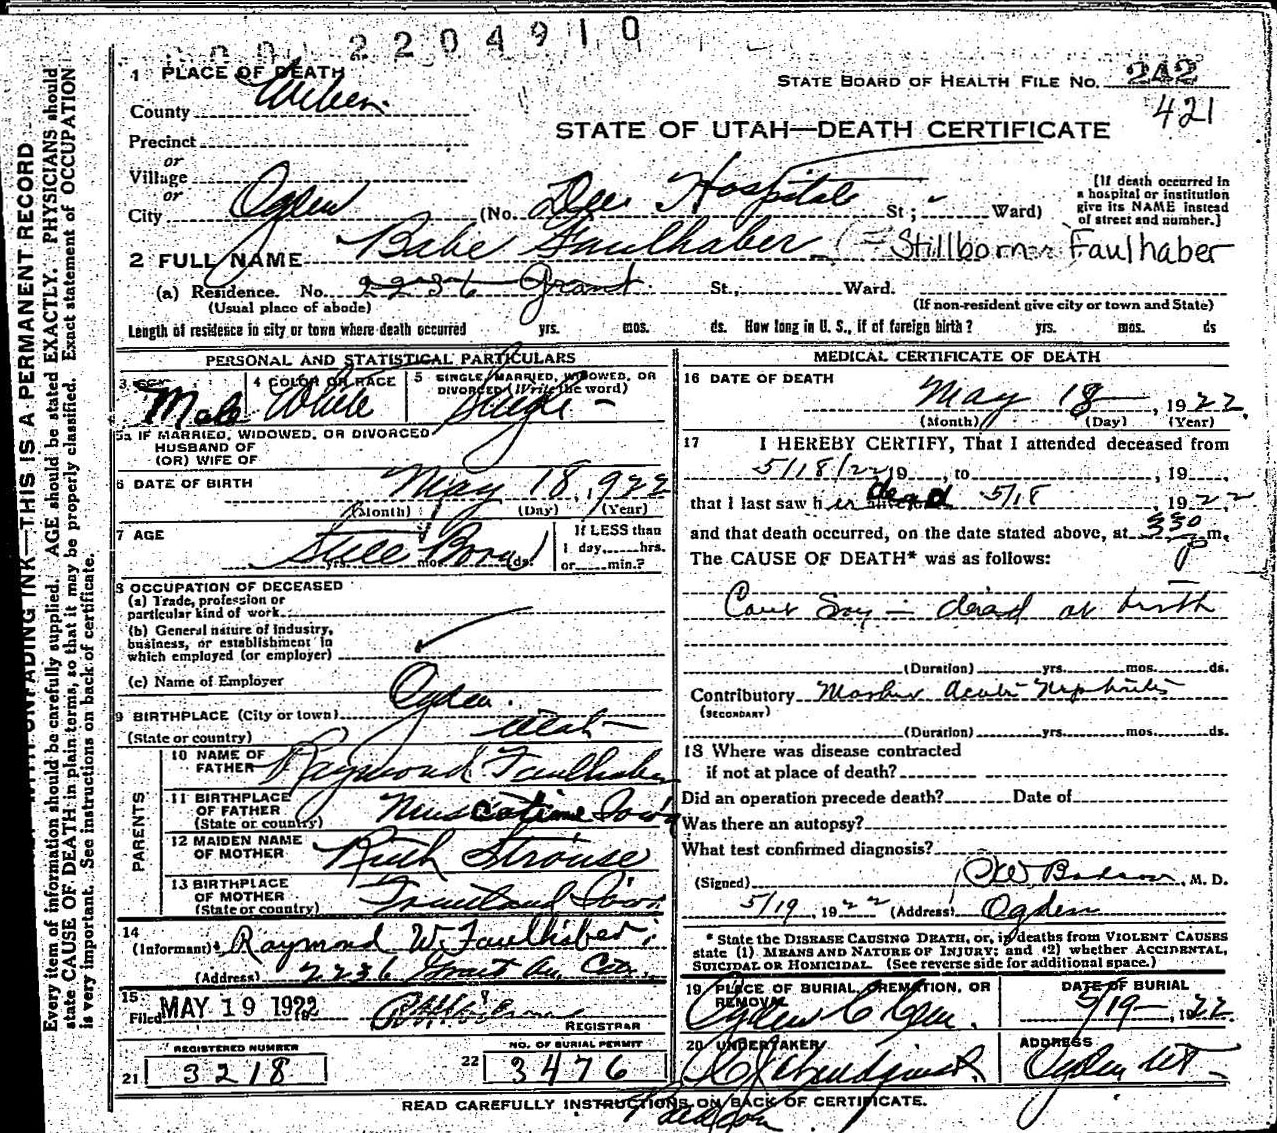 2204910
1 PLACE OF DEATH
STATE BOARD OF HEALTH FILE NO. 242
County Weber
421
STATE OF UTAH—DEATH CERTIFICATE
Precinct
or
Village
or
City Ogden (No. Dee Hospital St; Ward)
[If death occurred in
a hospital or institution
give its NAME instead
of street and number.]
2 FULL NAME Babe Faulhaber (= Stillborn Faulhaber
(a) Residence. No. 2236 Grant St., Ward.
(Usual place of abode) (If non-resident give city or town and State)
Length of residence in city or town where death occurred yrs. mos. ds. How long in U. S., if of foreign birth? yrs. mos. ds
PERSONAL AND STATISTICAL PARTICULARS
3 SEX Male
4 COLOR OR RACE White
5 SINGLE, MARRIED, WIDOWED, OR
DIVORCED (Write the word)
Single
5a IF MARRIED, WIDOWED, OR DIVORCED
HUSBAND OF
(OR) WIFE OF
6 DATE OF BIRTH May 18, 1922
(Month) (Day) (Year)
7 AGE Still Born
yrs. mos. ds.
If LESS than
1 day, hrs.
or min.?
8 OCCUPATION OF DECEASED
(a) Trade, profession or
particular kind of work
(b) General nature of industry,
business, or establishment in
which employed (or employer)
(c) Name of Employer
9 BIRTHPLACE (City or town) Ogden.
(State or country) Utah
PARENTS
10 NAME OF
FATHER Raymond Faulhaber
11 BIRTHPLACE
OF FATHER
(State or country) Muscatine Iowa
12 MAIDEN NAME
OF MOTHER Ruth Strouse
13 BIRTHPLACE
OF MOTHER
(State or country) Iowa
14
(Informant) Raymond W. Faulhaber
(Address) 2236 Grant Av. City
15
Filed MAY 19 1922
REGISTRAR
REGISTERED NUMBER
21 3218
NO. OF BURIAL PERMIT
22 3476
MEDICAL CERTIFICATE OF DEATH
16 DATE OF DEATH
May 18, 1922.
(Month) (Day) (Year)
17 I HEREBY CERTIFY, That I attended deceased from
5/18/22, 19 , to , 19
that I last saw h er dead 5/18 1922
and that death occurred, on the date stated above, at 330 p m.
The CAUSE OF DEATH* was as follows:
Cant Say — dead at birth
(Duration) yrs. mos. ds.
Contributory Mother Acute Nephritis
(SECONDARY)
(Duration) yrs. mos. ds.
18 Where was disease contracted
if not at place of death?
Did an operation precede death? Date of
Was there an autopsy?
What test confirmed diagnosis?
(Signed) M. D.
5/19, 1922 (Address) Ogden
* State the DISEASE CAUSING DEATH, or, in deaths from VIOLENT CAUSES
state (1) MEANS AND NATURE OF INJURY; and (2) whether ACCIDENTAL,
SUICIDAL OR HOMICIDAL. (See reverse side for additional space.)
19 PLACE OF BURIAL, CREMATION, OR
REMOVAL
Ogden C Cem.
DATE OF BURIAL
5/19, 1922.
20 UNDERTAKER
ADDRESS
Ogden Ut
READ CAREFULLY INSTRUCTIONS ON BACK OF CERTIFICATE.
UNFADING INK—THIS IS A PERMANENT RECORD
Every item of information should be carefully supplied. AGE should be stated EXACTLY. PHYSICIANS should
state CAUSE OF DEATH in plain terms, so that it may be properly classified. Exact statement of OCCUPATION
is very important. See instructions on back of certificate.